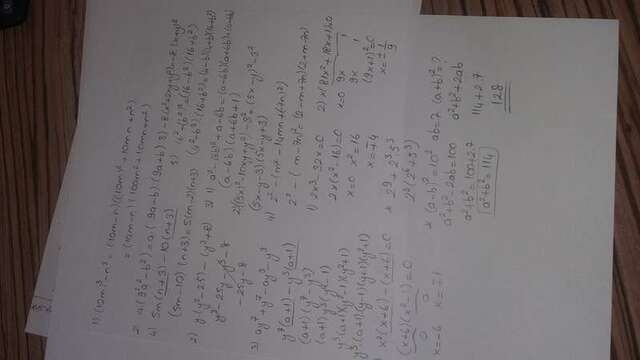 1) (10m)³-n³ = (10m-n)((10m)²+10mn+n²)
= (10m-n)(100m²+10mn+n²)
2. a.(9²a²-b²) = a.(9a-b).(9a+b)
3) -8(x²+2xy+y²) = -8(x+y)²
4) 5m(n+3)-10(n+3)
(5m-10)(n+3) = 5(m-2)(n+3)
5) (4²-(b²)² = (16-b²)(16+b²)
(4²-b²)(16+b²) = (4-b)(4+b)(16+b²)
2) y(y²-25)-(y³+8)
y³-25y-y³-8
-25y-8
3) 1) a²-(6b)²+a-6b = (a-6b)(a+6b)+(a-6b)
(a-6b)(a+6b+1)
2) (5x)²-10xy+y²)-3² = (5x-y)²-3²
(5x-y-3)(5x-y+3)
3) ay⁷+y⁷-ay³-y³
y⁷(a+1)-y³(a+1)
(a+1)(y⁷-y³)
(a+1)y³(y⁴-1)
y³(a+1)(y²-1)(y²+1)
y³.(a+1)(y-1)(y+1)(y²+1)
4) 2²-(m²-14mn+(7n)²)
2²-(m-7n)² = (2-m+7n)(2+m-7n)
x²(x+6)-(x+6)=0
(x+6)(x²-1)=0
0 0
x=-6 x=∓1
1) 2x³-32x=0
2x(x²-16)=0
x=0 x²=16
x=∓4
2) x(81x²+18x+1)=0
x=0 9x 1
9x 1
(9x+1)²=0
x=∓1/9
* 2⁹+2³5³
2³(2⁶+5³)
* (a-b)²=10² ab=7 (a+b)²=?
a²+b²-2ab=100
a²+b²=100+2.7
a²+b²=114
a²+b²+2ab
114+2.7
128